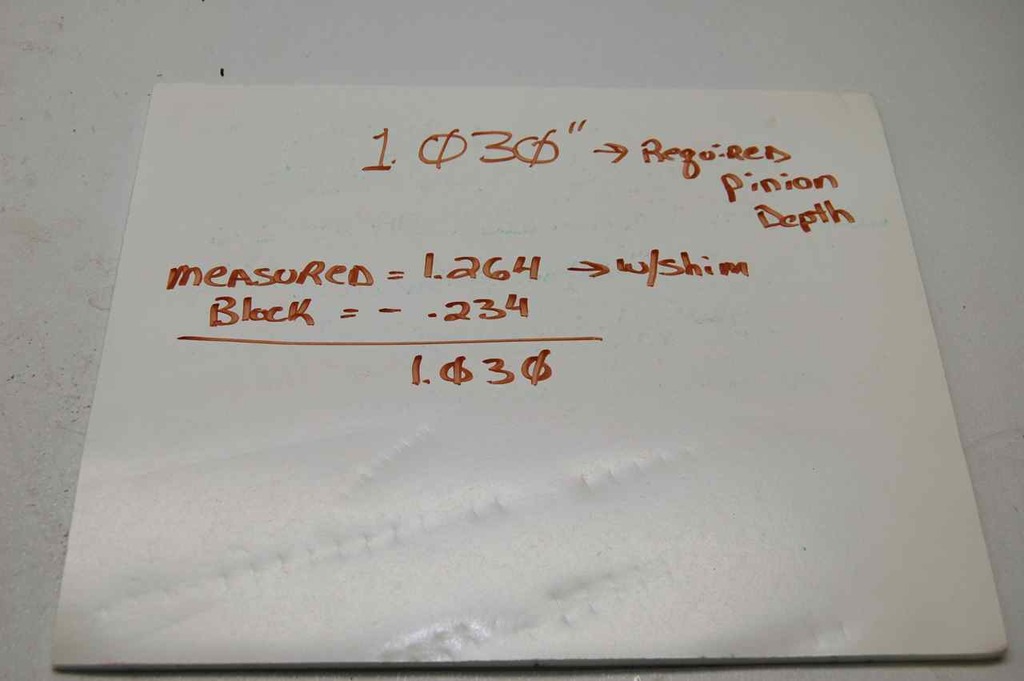 1.030" → Required
Pinion
Depth
MEASURED = 1.264 → w/shim
Block = - .234
1.030